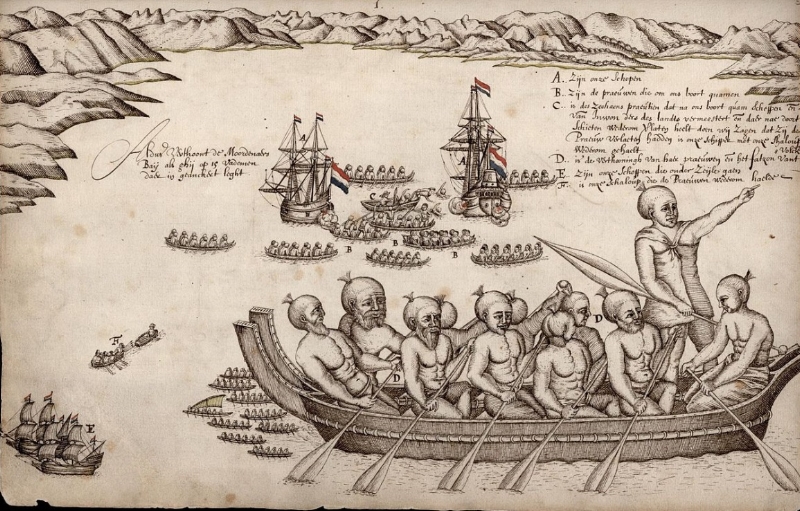 1.
A. Zijn onze Schepen
B. Zijn de praeuwen die om ons boort quamen
C. is des Zeehaens praeutien dat na ons boort quam Scheppen en
Van Inwon ders des landts vermeestert en date nae door
Schieten Wederom Vlates hielt doen wij Zagen dat Zij de
Praeuw Verlaeten hadden is onze Schipper met onze Shaloup
Wederom gehaelt
D. is de Verthooningh Van hare praeuwen en het fatzen Vant
E. Zijn onze Scheppen die onder Zeijler gaen
F. is onze Schaloup die de Praeuwen wederom haelde
Aldus Verthoont de Moordenaers
Baij als ghij op 15 Vademen
daer in geanckert leght
B
B
B
D
D
F
E